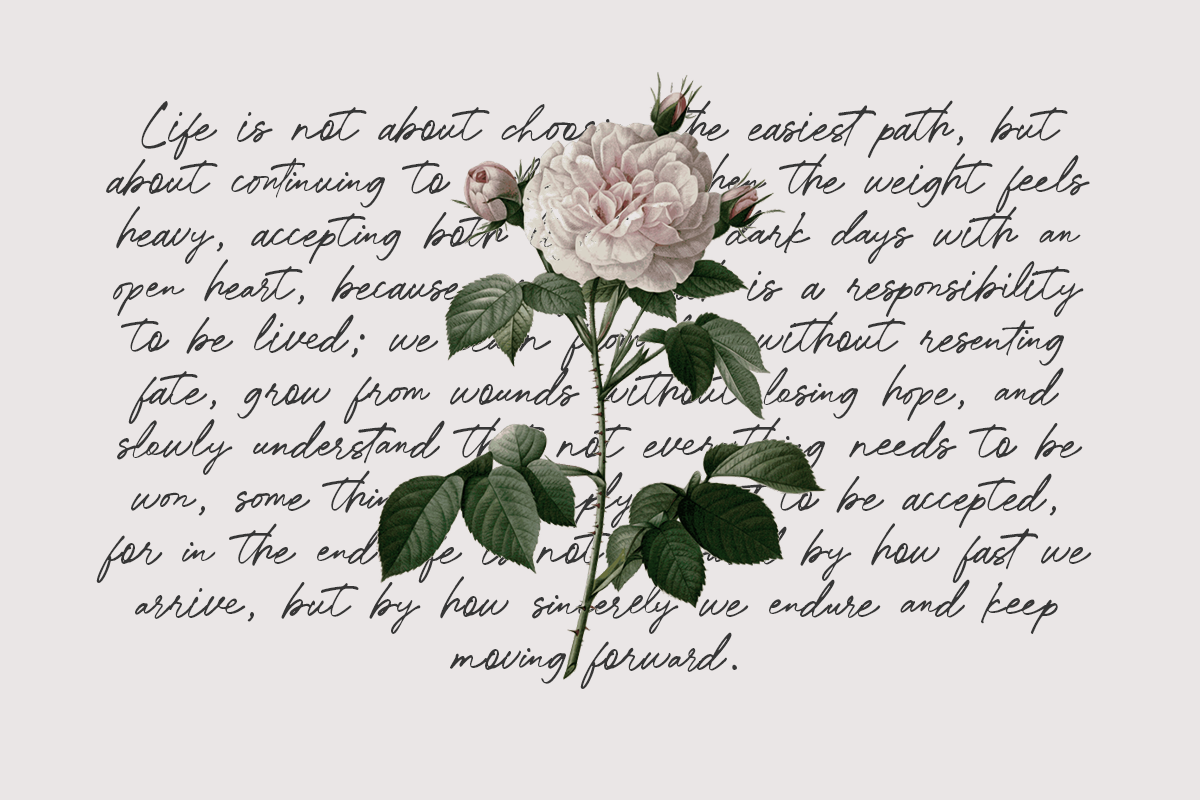 Life is not about the easiest path, but
about continuing to the weight feels
heavy, accepting both dark days with an
open heart, because is a responsibility
to be lived; we learn from without resenting
fate, grow from wounds without losing hope, and
slowly understand that not everything needs to be
won, some to be accepted,
for in the end life is not by how fast we
arrive, but by how sincerely we endure and keep
moving forward.